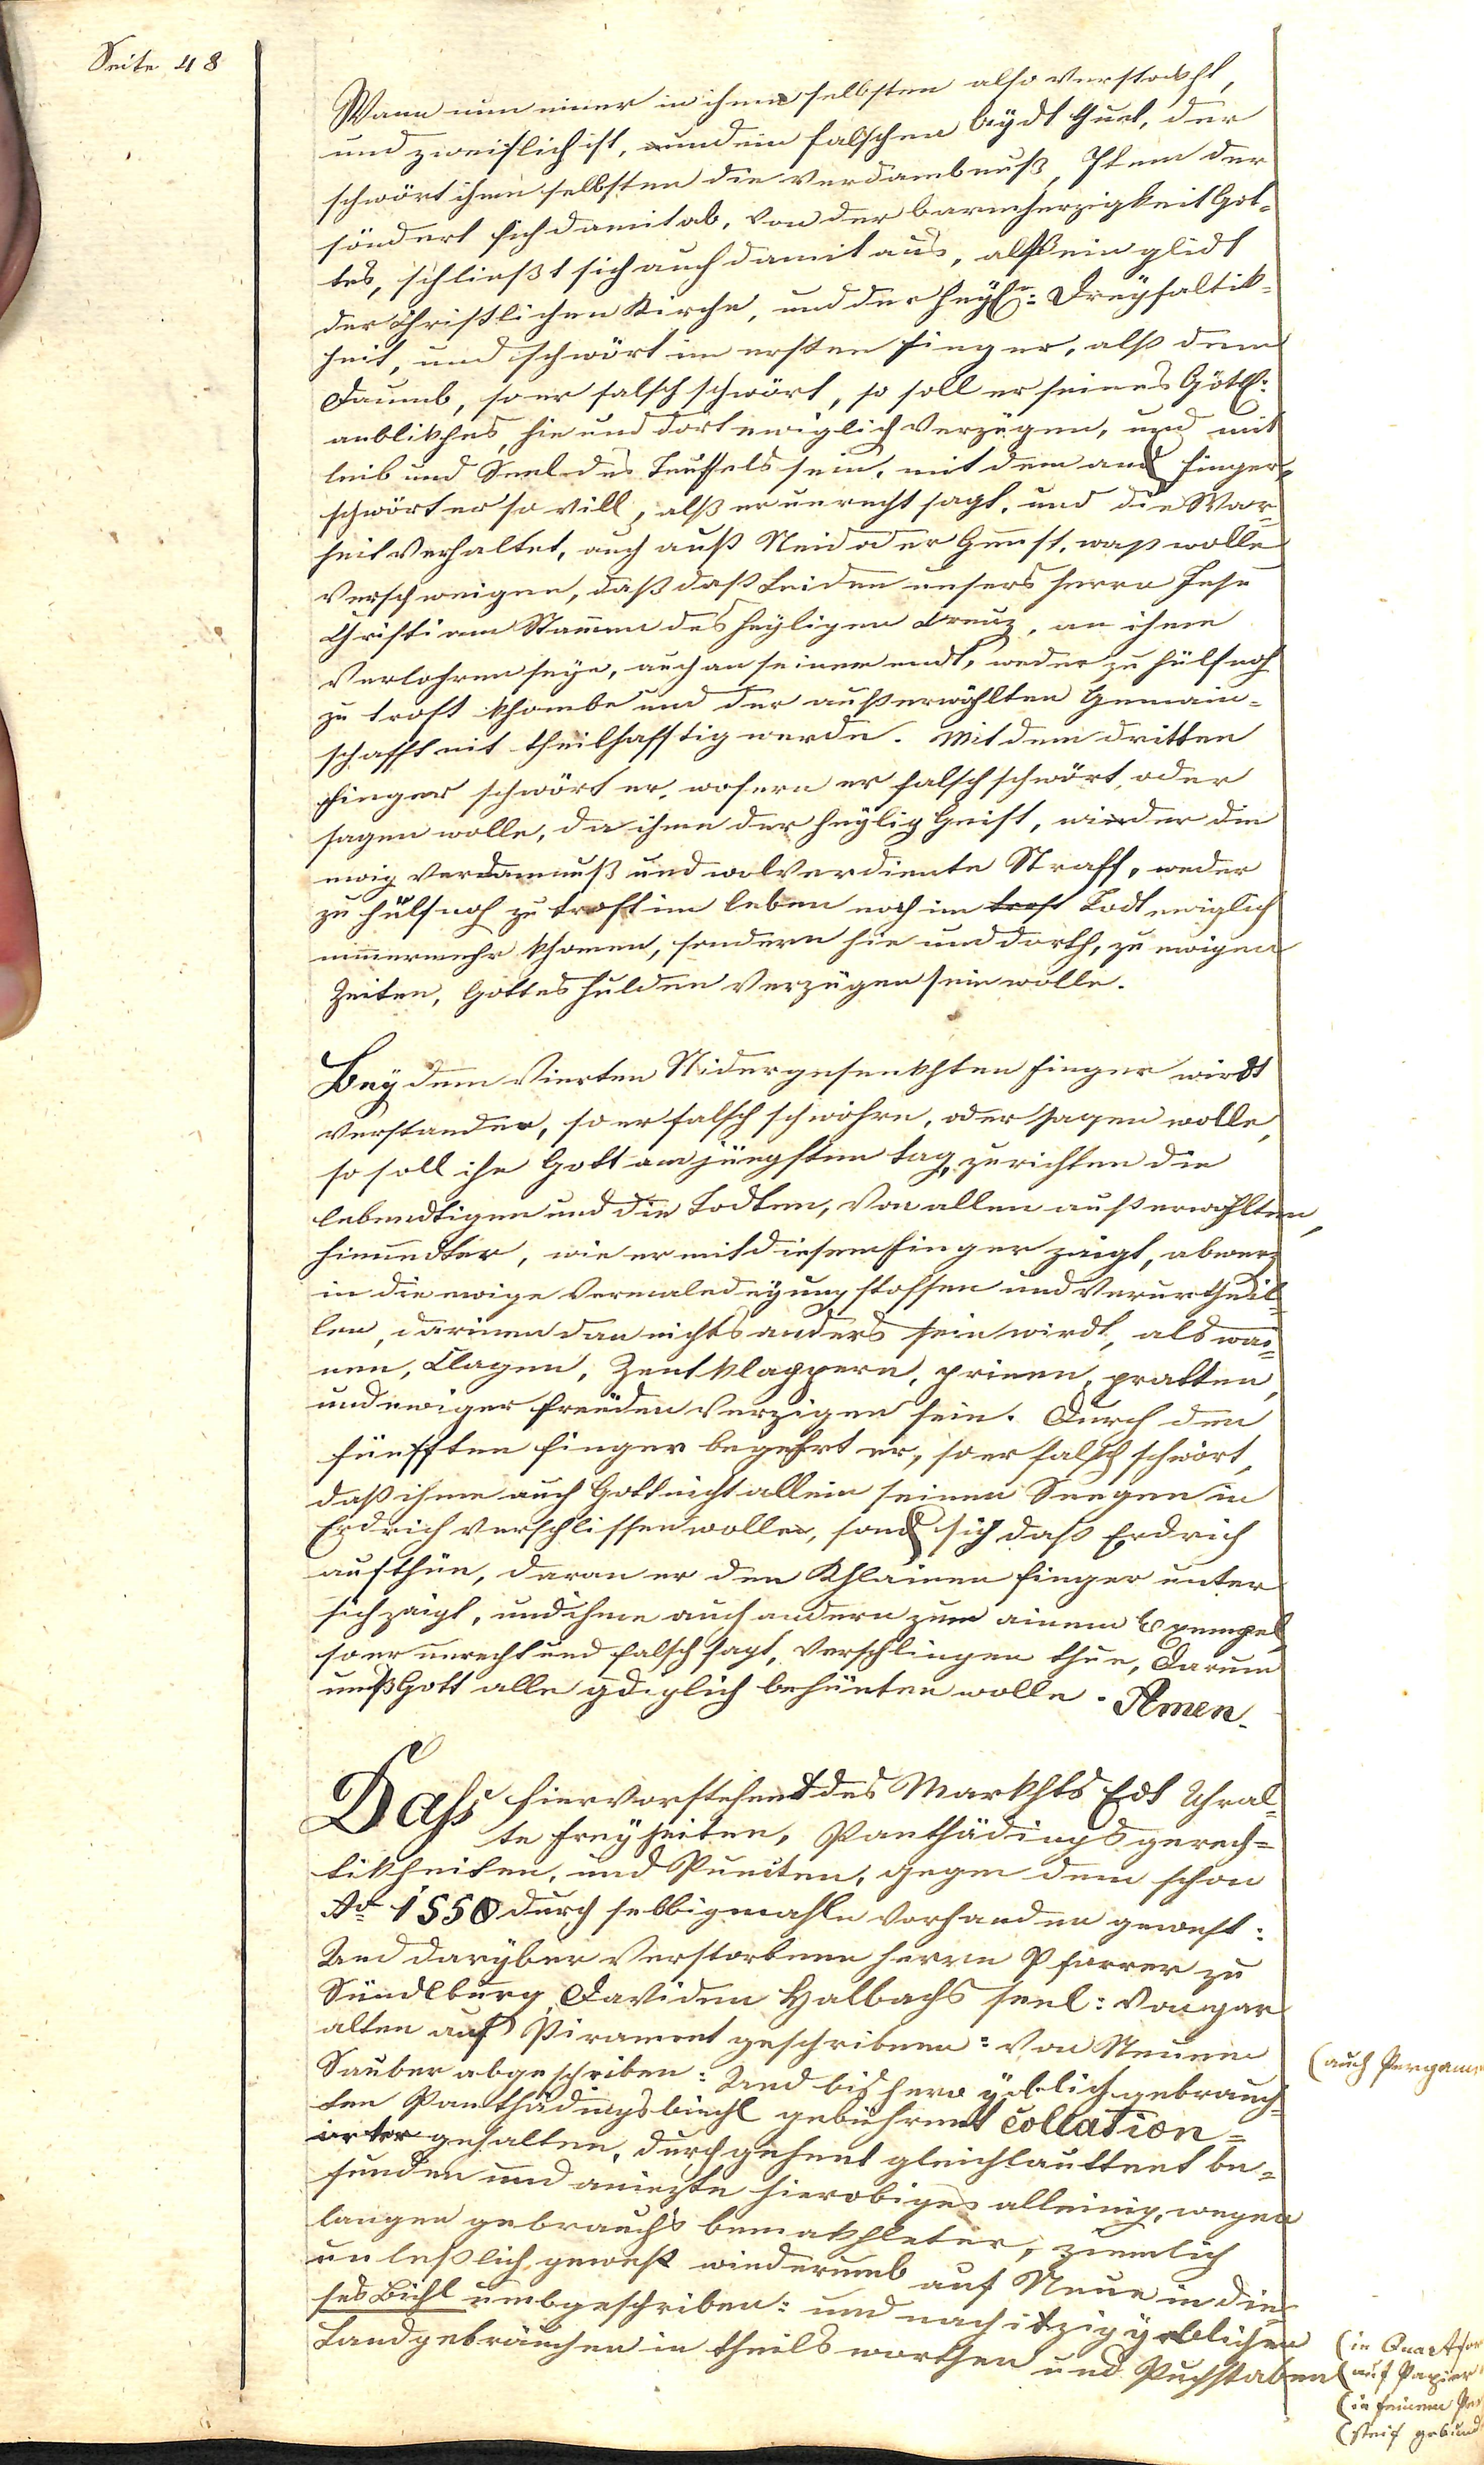 Seite 48
Wann nun einer in ihme selbsten also verstockht,
und zweiflich ist, und ein falschen Aydt thuet, der
schwört ihme selbsten die verdambnuß, Item der
söndert sich damit ab, von der barmherzigkeit Got-
tes, schließt sich auch damit aus, alß ein glidt
der Christlichen Kirche, und der heyl: Dreyfaltik-
heit, und schwört im ersten finger, alß dem
Daumb, so er falsch schwört, so soll er seines Götl:
anblikhes, hie und dort ewiglich verzigen, und mit
leib und Seel des Teuffels sein, mit dem and finger,
schwört er so vill, alß er unrecht sagt, und die War-
heit verhaltet, auch auß Neid oder Gunst, waß wolle
verschweigen, daß daß Leiden unsers herrn Jesu
Christi am Stamen des heyligen Creuz, an ihme
verlohren seye, auch an seinem endt, weder zu hülf noch
zu trost khombe und der außerwöhlten Gemain-
schafft nit theilhafftig werde. Mit dem dritten
finger schwört er, wofern er falsch schwört, oder
sagen wolle, da ihme der heylig Geist, wieder die
ewig verdamnuß und wolverdiente Straff, weder
zu hülf noch zu trost im leben noch im trost Todt ewiglich
nimermehr khomen, sondern hie und dorth, zu ewigen
Zeiten, Gottes hulden verzigen sein wolle.
Bey dem vierten Nidergesenkhten finger wirdt
verstanden, so er falsch schwöhre, oder sagen wolle,
so soll ihn Gott am jüngsten tag, zu richten die
lebendtigen und die Todten, von allen außerwöhlten,
hinundter, wie er mit diesem finger zaigt, abwerz
in die ewige vermaledeyung stossen und verurtheil-
len, darinen dan nichts anders sein wirdt, als wai-
nen, Clagen, Zentklappern, prinen, pratten,
und ewiger freüden verzigen sein. Durch den
fünfften finger begehrt er, so er falsch schwört,
daß ihme auch Gott nicht allein seinen Seegen in
Erdrich verschlissen wolle, sond sich daß Erdrich
aufthün, daran er den Khlainen finger unter
sich zaigt, und ihme auch andern zum ainem Exempel,
so er unrecht und falsch sagt, verschlingen thue, Darum
unß Gott alle gdiglich behüeten wolle. Amen.
Dass hiervorstehent des Markhts Edt Uhral-
te freyheiten, Panthädings gerech-
tikheiten, und Puncten, gegen dem schon
Ao 1550 durch selbigmahle vorhanden gewest:
Und daryber verstorbenen herrn Pfarrer zu
Sündlburg, Daviden Halbachs seel: von gar
alten auf Pirament geschribnen: von Neuem
Sauber abgeschriben: Und bishero yeblich gebrauch-
ten Panthädingsbiechl gebührent collation-
irter gehalten, durchgehent gleichlauttent be-
funden und aniezte hierobiges alleinig, wegen
langen gebrauchs bemakhleter, ziemlich
unleßlich gewest wiederumb auf Neue in die-
ses Bichl umbgeschriben: und nach itzig yeblichen
Landgebräuchen in theils worthen und Puchstaben
(auch Pergame
(in Quartfor
(auf Papier
(in feinem Per
(steif gebund